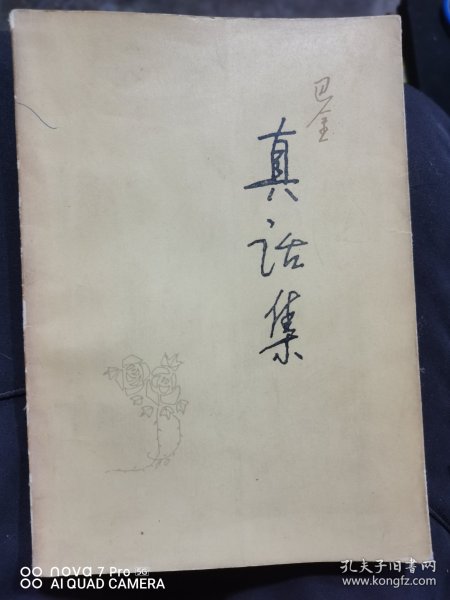 巴金
真话集
nova 7 Pro 5G
AI QUAD CAMERA
孔夫子旧书网
www.kongfz.com